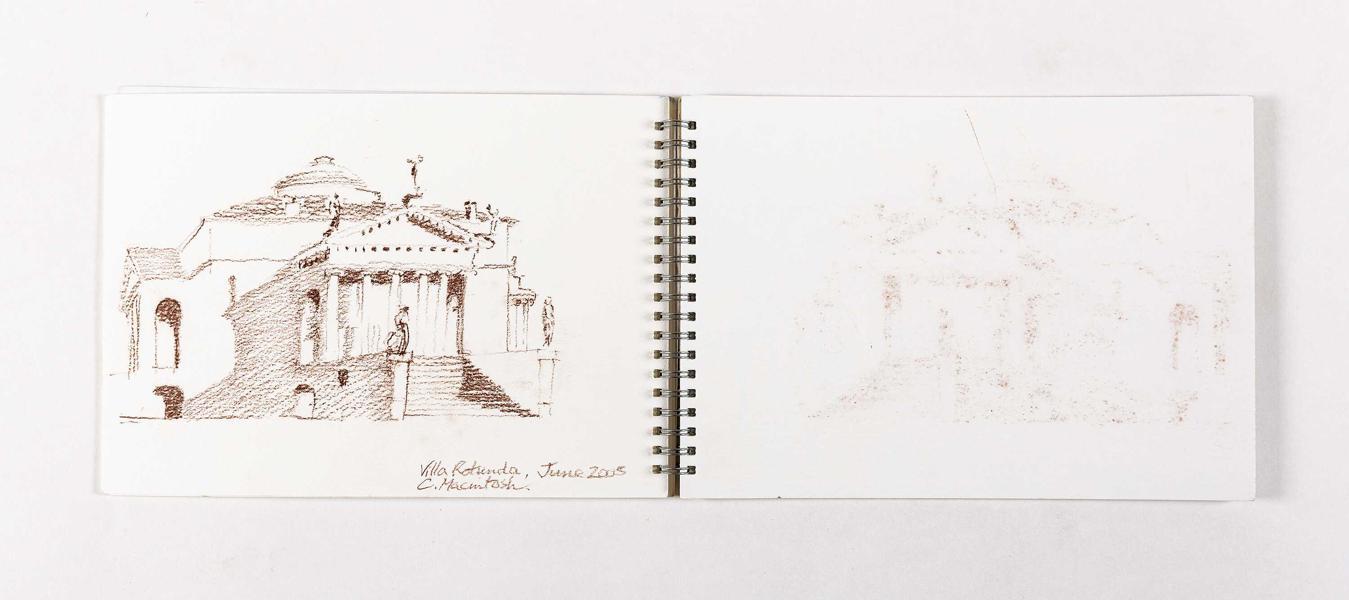 Villa Rotunda, June 2005
C. Macintosh.